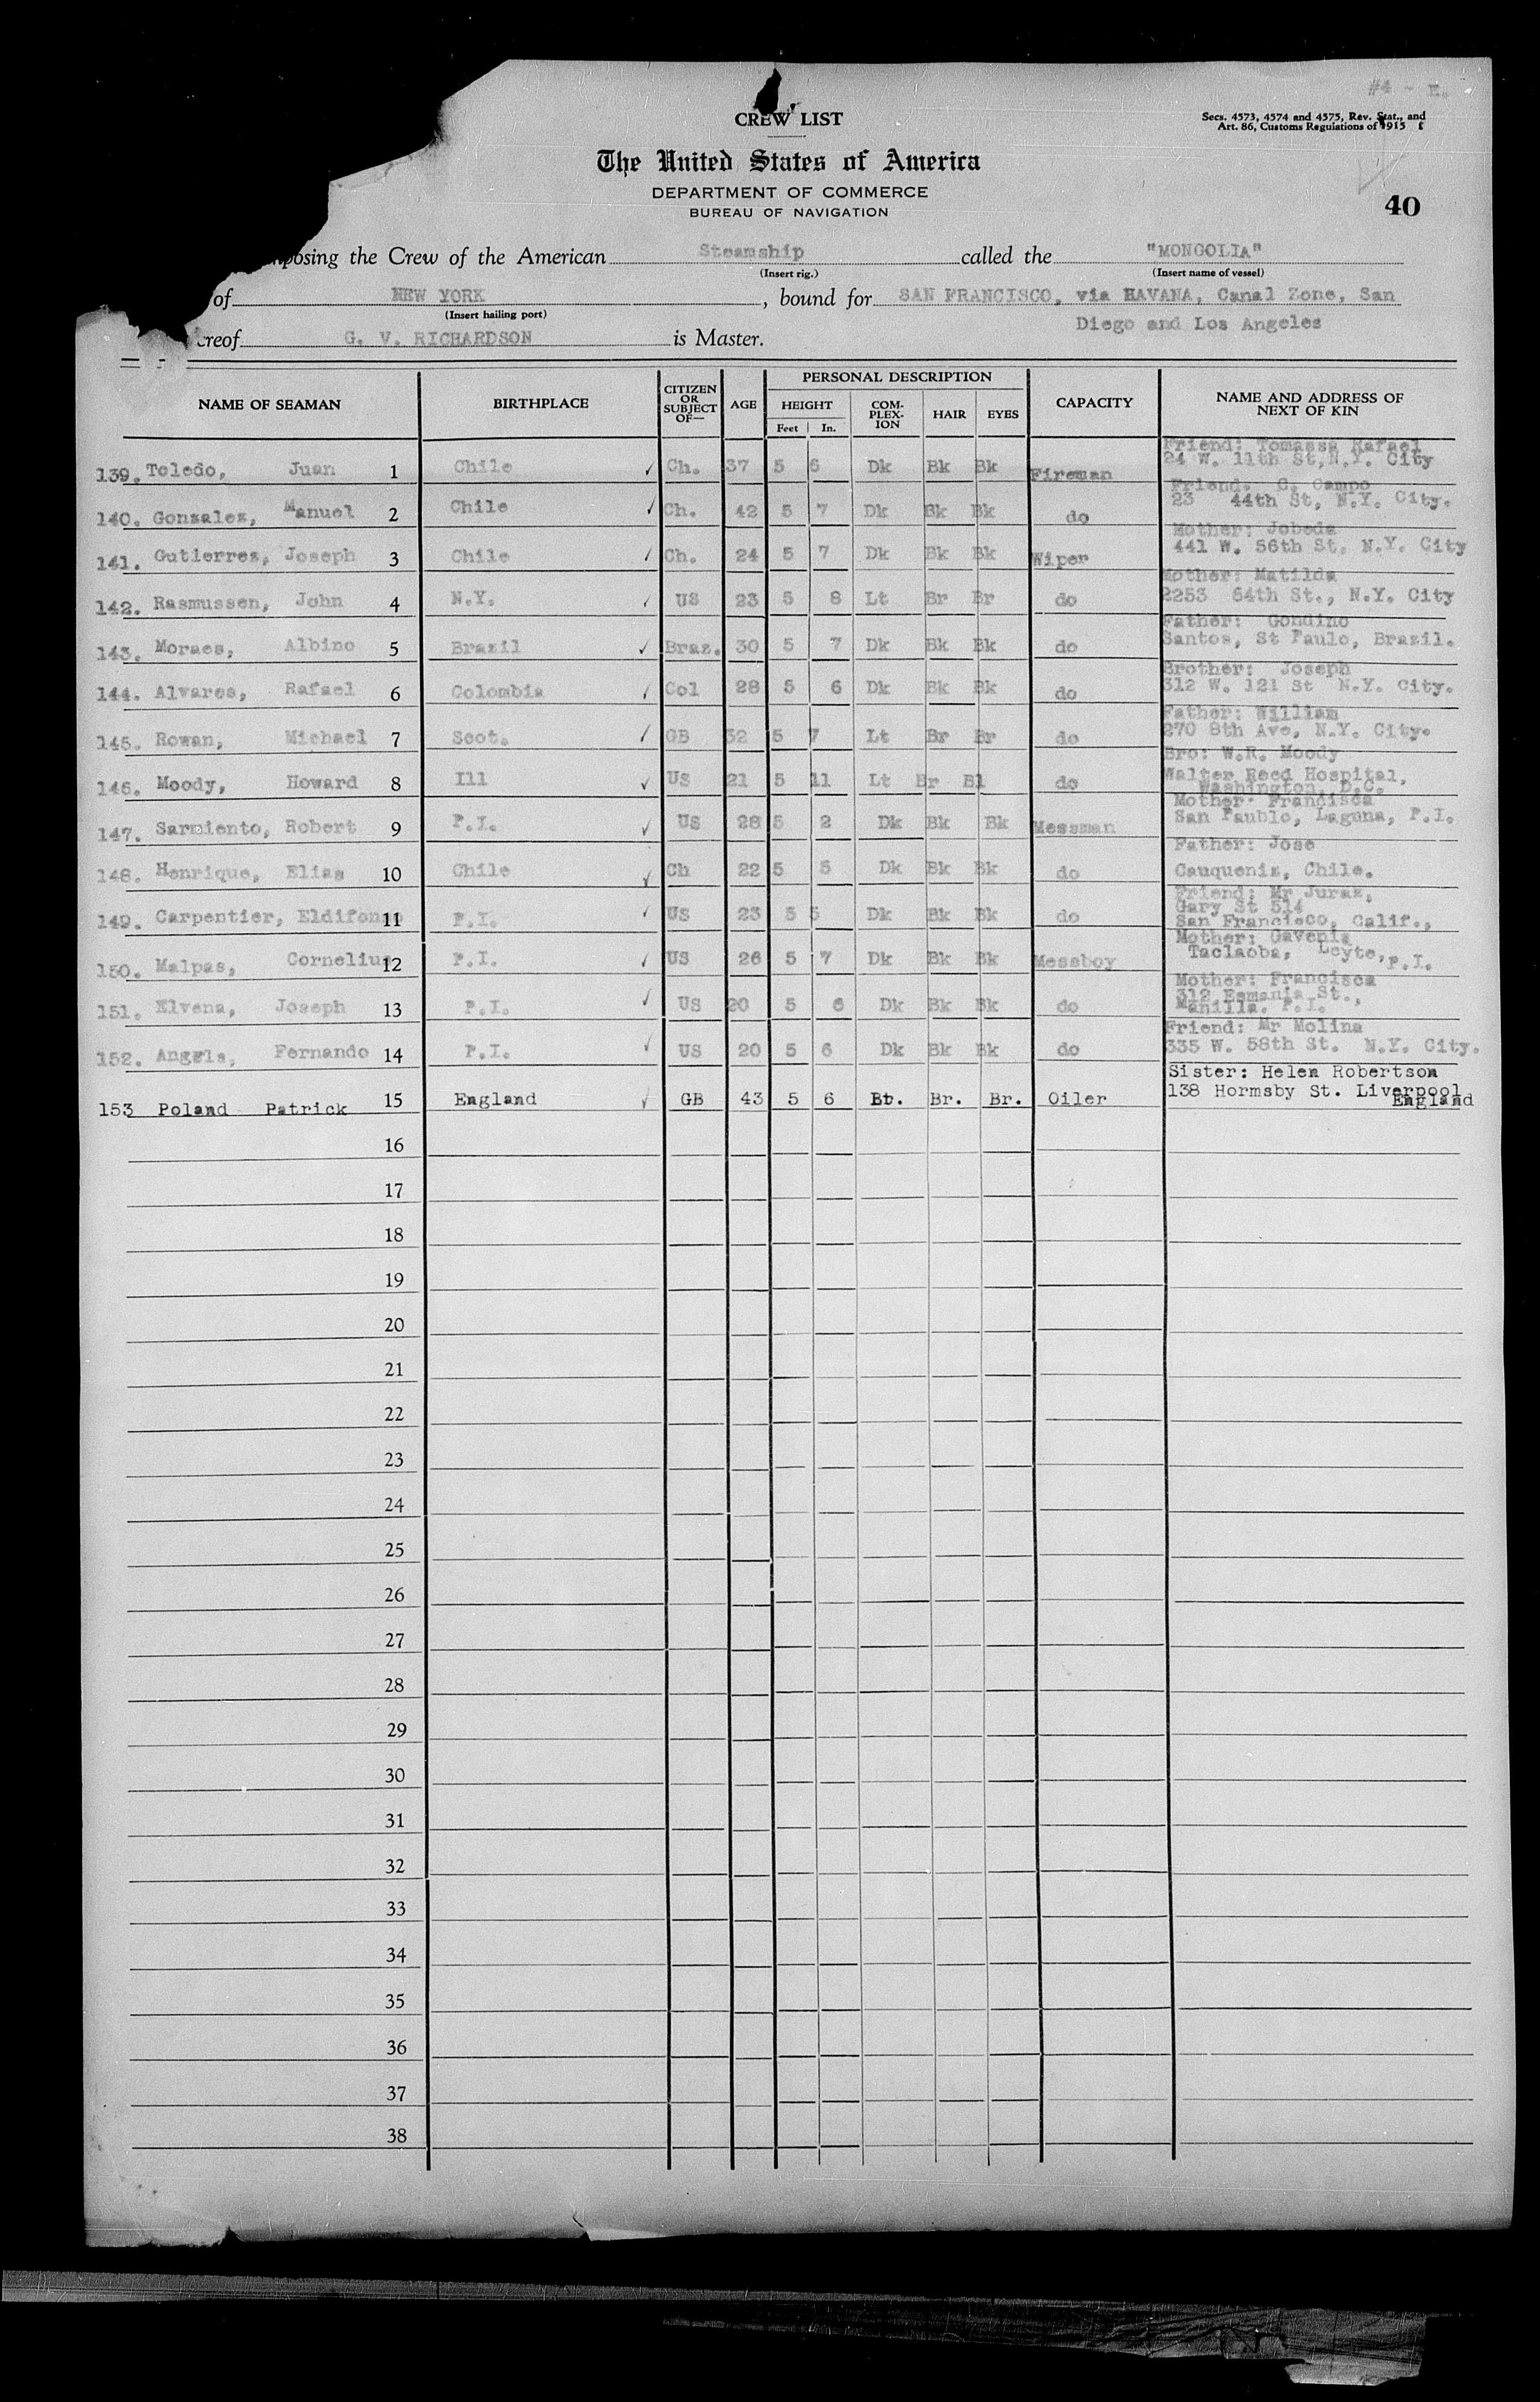 #4 -
CREW LIST
Secs. 4573, 4574 and 4575, Rev. Stat., and
Art. 86, Customs Regulations of 1915
The United States of America
DEPARTMENT OF COMMERCE
BUREAU OF NAVIGATION
40
mposing the Crew of the American Steamship called the "MONGOLIA"
(Insert rig.) (Insert name of vessel)
of NEW YORK, bound for SAN FRANCISCO, via HAVANA, Canal Zone, San
(Insert hailing port) Diego and Los Angeles
ereof G. V. RICHARDSON is Master.
NAME OF SEAMAN BIRTHPLACE CITIZEN OR SUBJECT OF— AGE PERSONAL DESCRIPTION CAPACITY NAME AND ADDRESS OF NEXT OF KIN
HEIGHT COM-PLEX-ION HAIR EYES
Feet In.
Friend: Tomassa Rafael
139. Toledo, Juan 1 Chile Ch. 37 5 6 Dk Bk Bk Fireman 24 W. 11th St, N.Y. City
Friend. C. Campo
140. Gonzalez, Manuel 2 Chile Ch. 42 5 7 Dk Bk Bk do 23 44th St, N.Y. City.
Mother: Jobeda
141. Gutierrez, Joseph 3 Chile Ch. 24 5 7 Dk Bk Bk Wiper 441 W. 56th St. N.Y. City
Mother: Matilda
142. Rasmussen, John 4 N.Y. US 23 5 8 Lt Br Br do 2253 64th St., N.Y. City
Father: Gondino
143. Moraes, Albino 5 Brazil Braz. 30 5 7 Dk Bk Bk do Santos, St Paulo, Brazil.
Brother: Joseph
144. Alvares, Rafael 6 Colombia Col 28 5 6 Dk Bk Bk do 312 W. 121 St N.Y. City.
Father: William
145. Rowan, Michael 7 Scot. GB 32 5 7 Lt Br Br do 270 8th Ave, N.Y. City.
Bro: W.R. Moody
146. Moody, Howard 8 Ill US 21 5 11 Lt Br Bl do Walter Reed Hospital,
Washington, D.C.
Mother- Francisca
147. Sarmiento, Robert 9 P.I. US 28 5 2 Dk Bk Bk Messman San Paublo, Laguna, P.I.
Father: Jose
148. Henrique, Elias 10 Chile Ch 22 5 5 Dk Bk Bk do Cauquenis, Chile.
Friend: Mr Juraz,
Gary St 514
149. Carpentier, Eldifonso 11 P.I. US 23 5 5 Dk Bk Bk do San Francisco, Calif.,
Mother: Gavenia
150. Malpas, Cornelius 12 P.I. US 26 5 7 Dk Bk Bk Messboy Taclaoba, Leyte, P.I.
Mother: Francisca
312 St.,
151. Elvena, Joseph 13 P.I. US 20 5 6 Dk Bk Bk do Manilla. P.I.
Friend: Mr Molina
152. Angels, Fernando 14 P.I. US 20 5 6 Dk Bk Bk do 335 W. 58th St. N.Y. City.
Sister: Helen Robertson
153 Poland Patrick 15 England GB 43 5 6 Br. Br. Oiler 138 Hormsby St. Liverpool
England
16
17
18
19
20
21
22
23
24
25
26
27
28
29
30
31
32
33
34
35
36
37
38